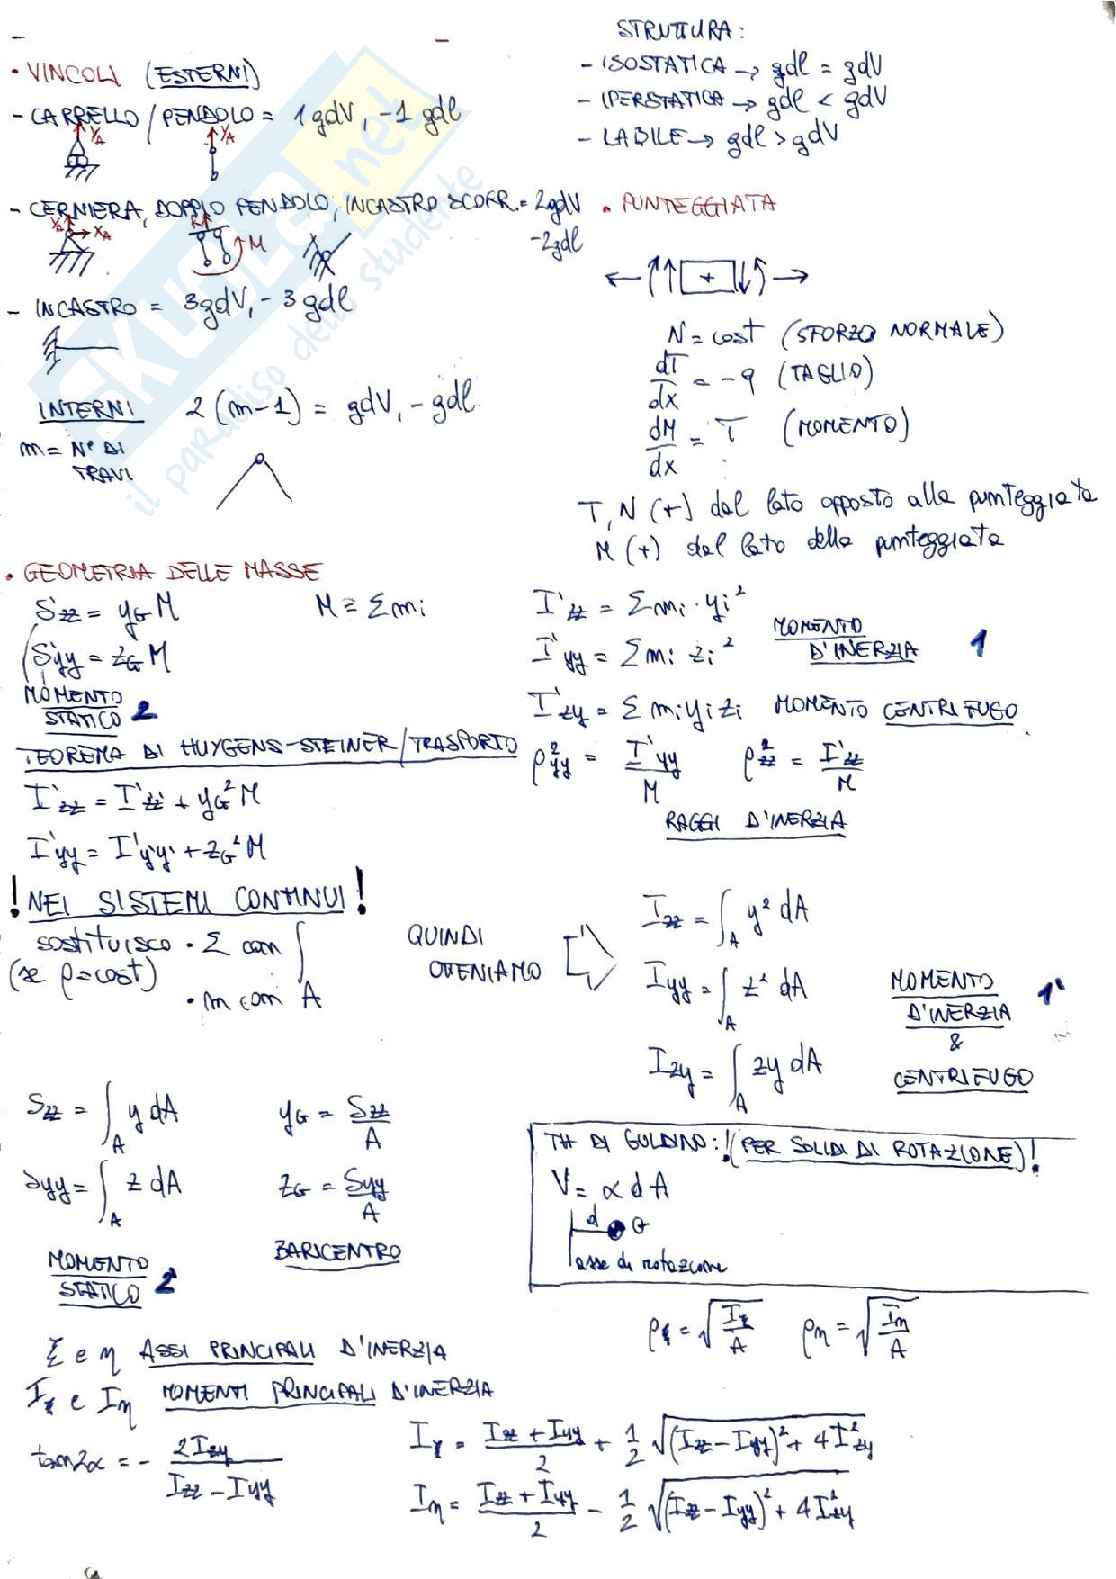 STRUTTURA:
- ISOSTATICA → gdl = gdV
- IPERSTATICA → gdl < gdV
- LABILE → gdl > gdV
• VINCOLI (ESTERNI)
- CARRELLO / PENDOLO = 1 gdV, -1 gdl
YA YA
- CERNIERA, DOPPIO PENDOLO, INCASTRO SCORR. = 2gdV
-2gdl
YA XA M
- INCASTRO = 3gdV, - 3 gdl
INTERNI 2 (m-1) = gdV, - gdl
m = N° DI
TRAVI
• PUNTEGGIATA
+
N = cost (SFORZO NORMALE)
dT/dx = -q (TAGLIO)
dM/dx = T (MOMENTO)
T, N (+) dal lato opposto alla punteggiata
M (+) dal lato della punteggiata
• GEOMETRIA DELLE MASSE
S'zz = yG M M = Σmi
S'yy = zG M
MOMENTO
STATICO 2
I'zz = Σmi · yi²
I'yy = Σmi zi²
MOMENTO
D'INERZIA 1
I'zy = Σ mi yi zi MOMENTO CENTRIFUGO
TEOREMA DI HUYGENS-STEINER/TRASPORTO
I'zz = I'z'z' + yG² M
I'yy = I'y'y' + zG² M
ρ²yy = I'yy/M ρ²zz = I'zz/M
RAGGI D'INERZIA
! NEI SISTEMI CONTINUI !
sostituisco • Σ con ∫
(se ρ=cost)
• m con A
QUINDI
OTENIAMO
Izz = ∫A y² dA
Iyy = ∫A z² dA
Izy = ∫A zy dA
MOMENTO
D'INERZIA 1'
&
CENTRIFUGO
Szz = ∫A y dA yG = Szz/A
Syy = ∫A z dA zG = Syy/A
MOMENTO
STATICO 2'
BARICENTRO
TH DI GULDINO: ! (PER SOLIDI DI ROTAZIONE) !
V = α d A
d G
asse di rotazione
ρξ = √(Iξ/A) ρη = √(Iη/A)
ξ e η ASSI PRINCIPALI D'INERZIA
Iξ e Iη MOMENTI PRINCIPALI D'INERZIA
tan2α = - 2Izy/(Izz - Iyy)
Iξ = (Izz + Iyy)/2 + 1/2 √((Izz - Iyy)² + 4I²zy)
Iη = (Izz + Iyy)/2 - 1/2 √((Izz - Iyy)² + 4I²zy)
SKUOLA.net
il paradiso dello studente